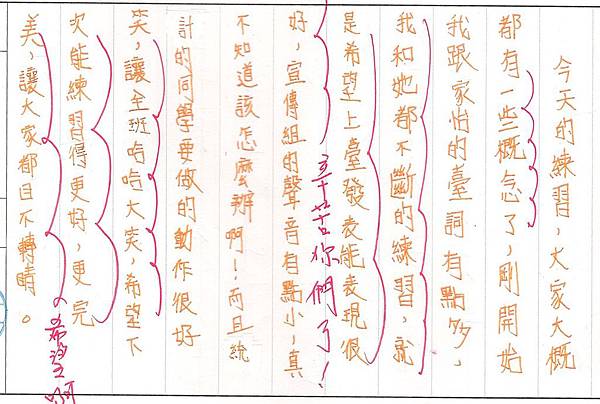 今天的練習，大家大概
都有一些概念了，剛開始
我跟家怡的臺詞有點多，
我和她都不斷的練習，就
是希望上臺發表能表現很
好，宣傳組的聲音有點小，真
辛苦你們了！
不知道該怎麼辦啊！而且統
計的同學要做的動作很好
笑，讓全班哈哈大笑，希望下
次能練習得更好，更完
美，讓大家都目不轉睛。
希望啊